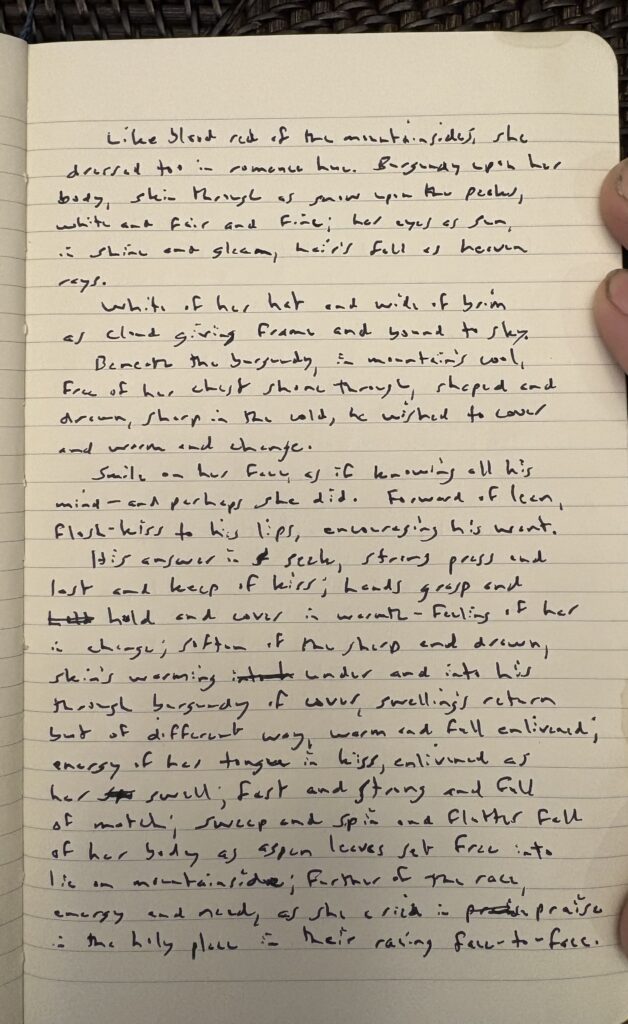 Like blood red of the mountainsides, she
dressed too in romance hue. Burgundy upon her
body, skin through as snow upon the peaks,
white and fair and fine; her eyes as sun,
in shine and gleam, hair's fall as heaven
rays.
White of her hat and wide of brim
as cloud giving frame and bound to sky.
Beneath the burgundy, in mountain's cool,
free of her chest shone through, shaped and
drawn, sharp in the cold, he wished to cover
and warm and change.
Smile on her face, as if knowing all his
mind—and perhaps she did. Forward of lean,
flesh-kiss to his lips, encouraging his want.
His answer in seek, strong press and
last and keep of kiss; hands grasp and
hold and cover in warmth-feeling of her
in change; soften of the sharp and drawn,
skin's warming under and into his
through burgundy of cover, swelling's return
but of different way, warm and full enlivened;
energy of her tongue in kiss, enlivened as
her swell; fast and strong and full
of match; sweep and spin and flutter fall
of her body as aspen leaves set free into
lie on mountainside; further of the race,
energy and need, as she cried in praise
in the holy place in their racing face-to-face.